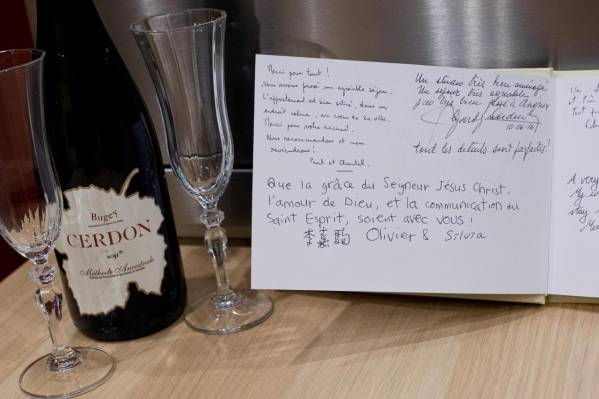 Bugey
CERDON
Méthode Ancestrale
Merci pour tout !
Nous avons passé un agréable séjour.
L'appartement est bien situé, dans un
endroit calme, au coeur de la ville.
Merci pour votre accueil.
Nous recommandons et nous
reviendrons !
Paul et Chantal.
Un studio très bien aménagé
Un séjour très agréable
10-06-16
tout les détails sont parfaites!
Que la grâce du Seyneur Jésus Christ,
l'amour de Dieu, et la communication du
Saint Esprit, soient avec vous !
李嘉 Olivier & Silvia
A very
My w
stay